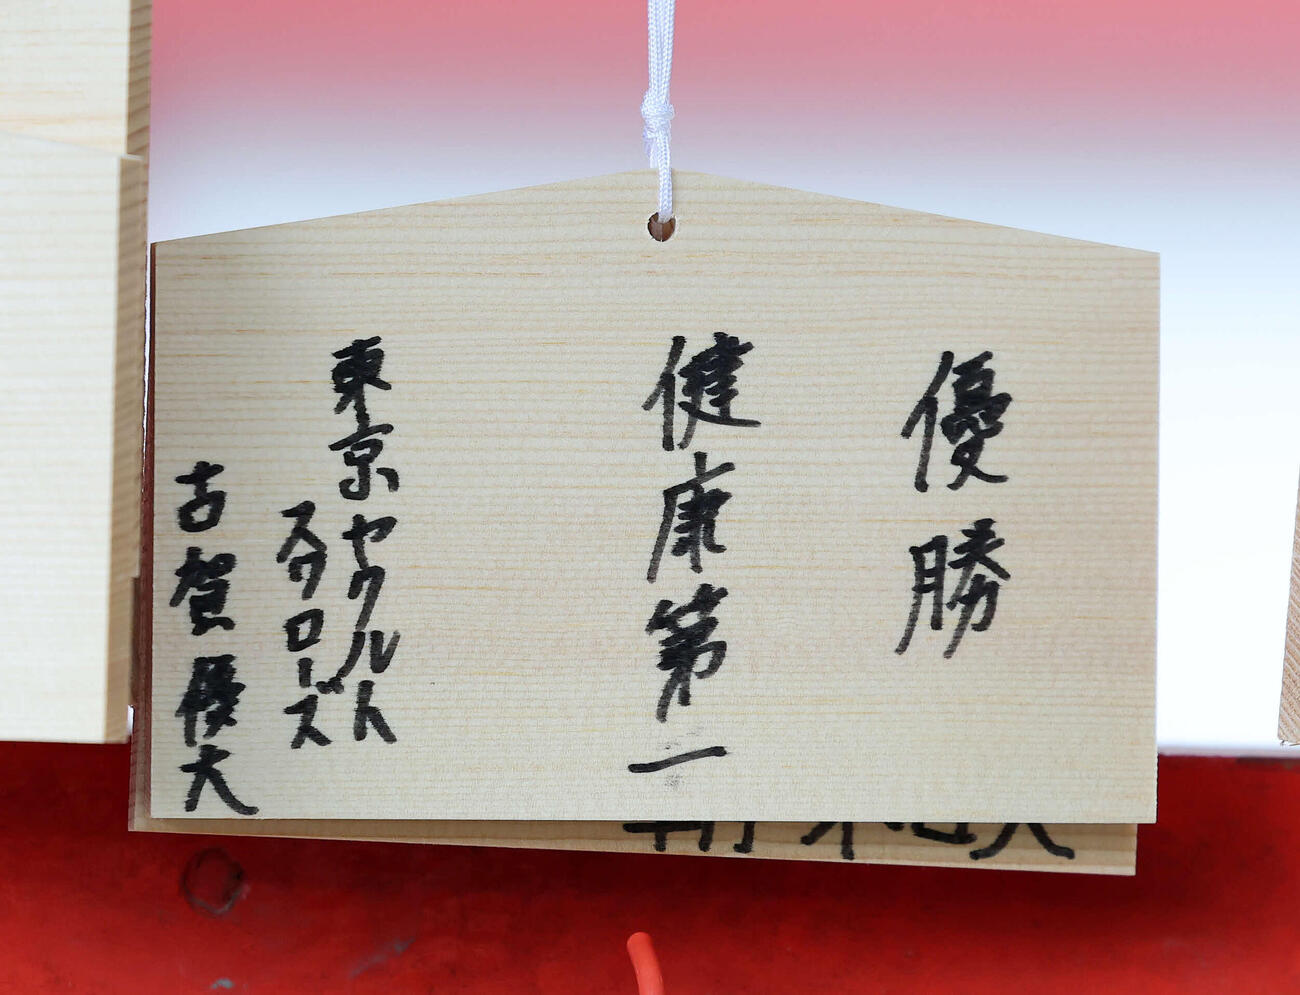 優勝
健康第一
東京ヤクルト
スワローズ
古賀優大